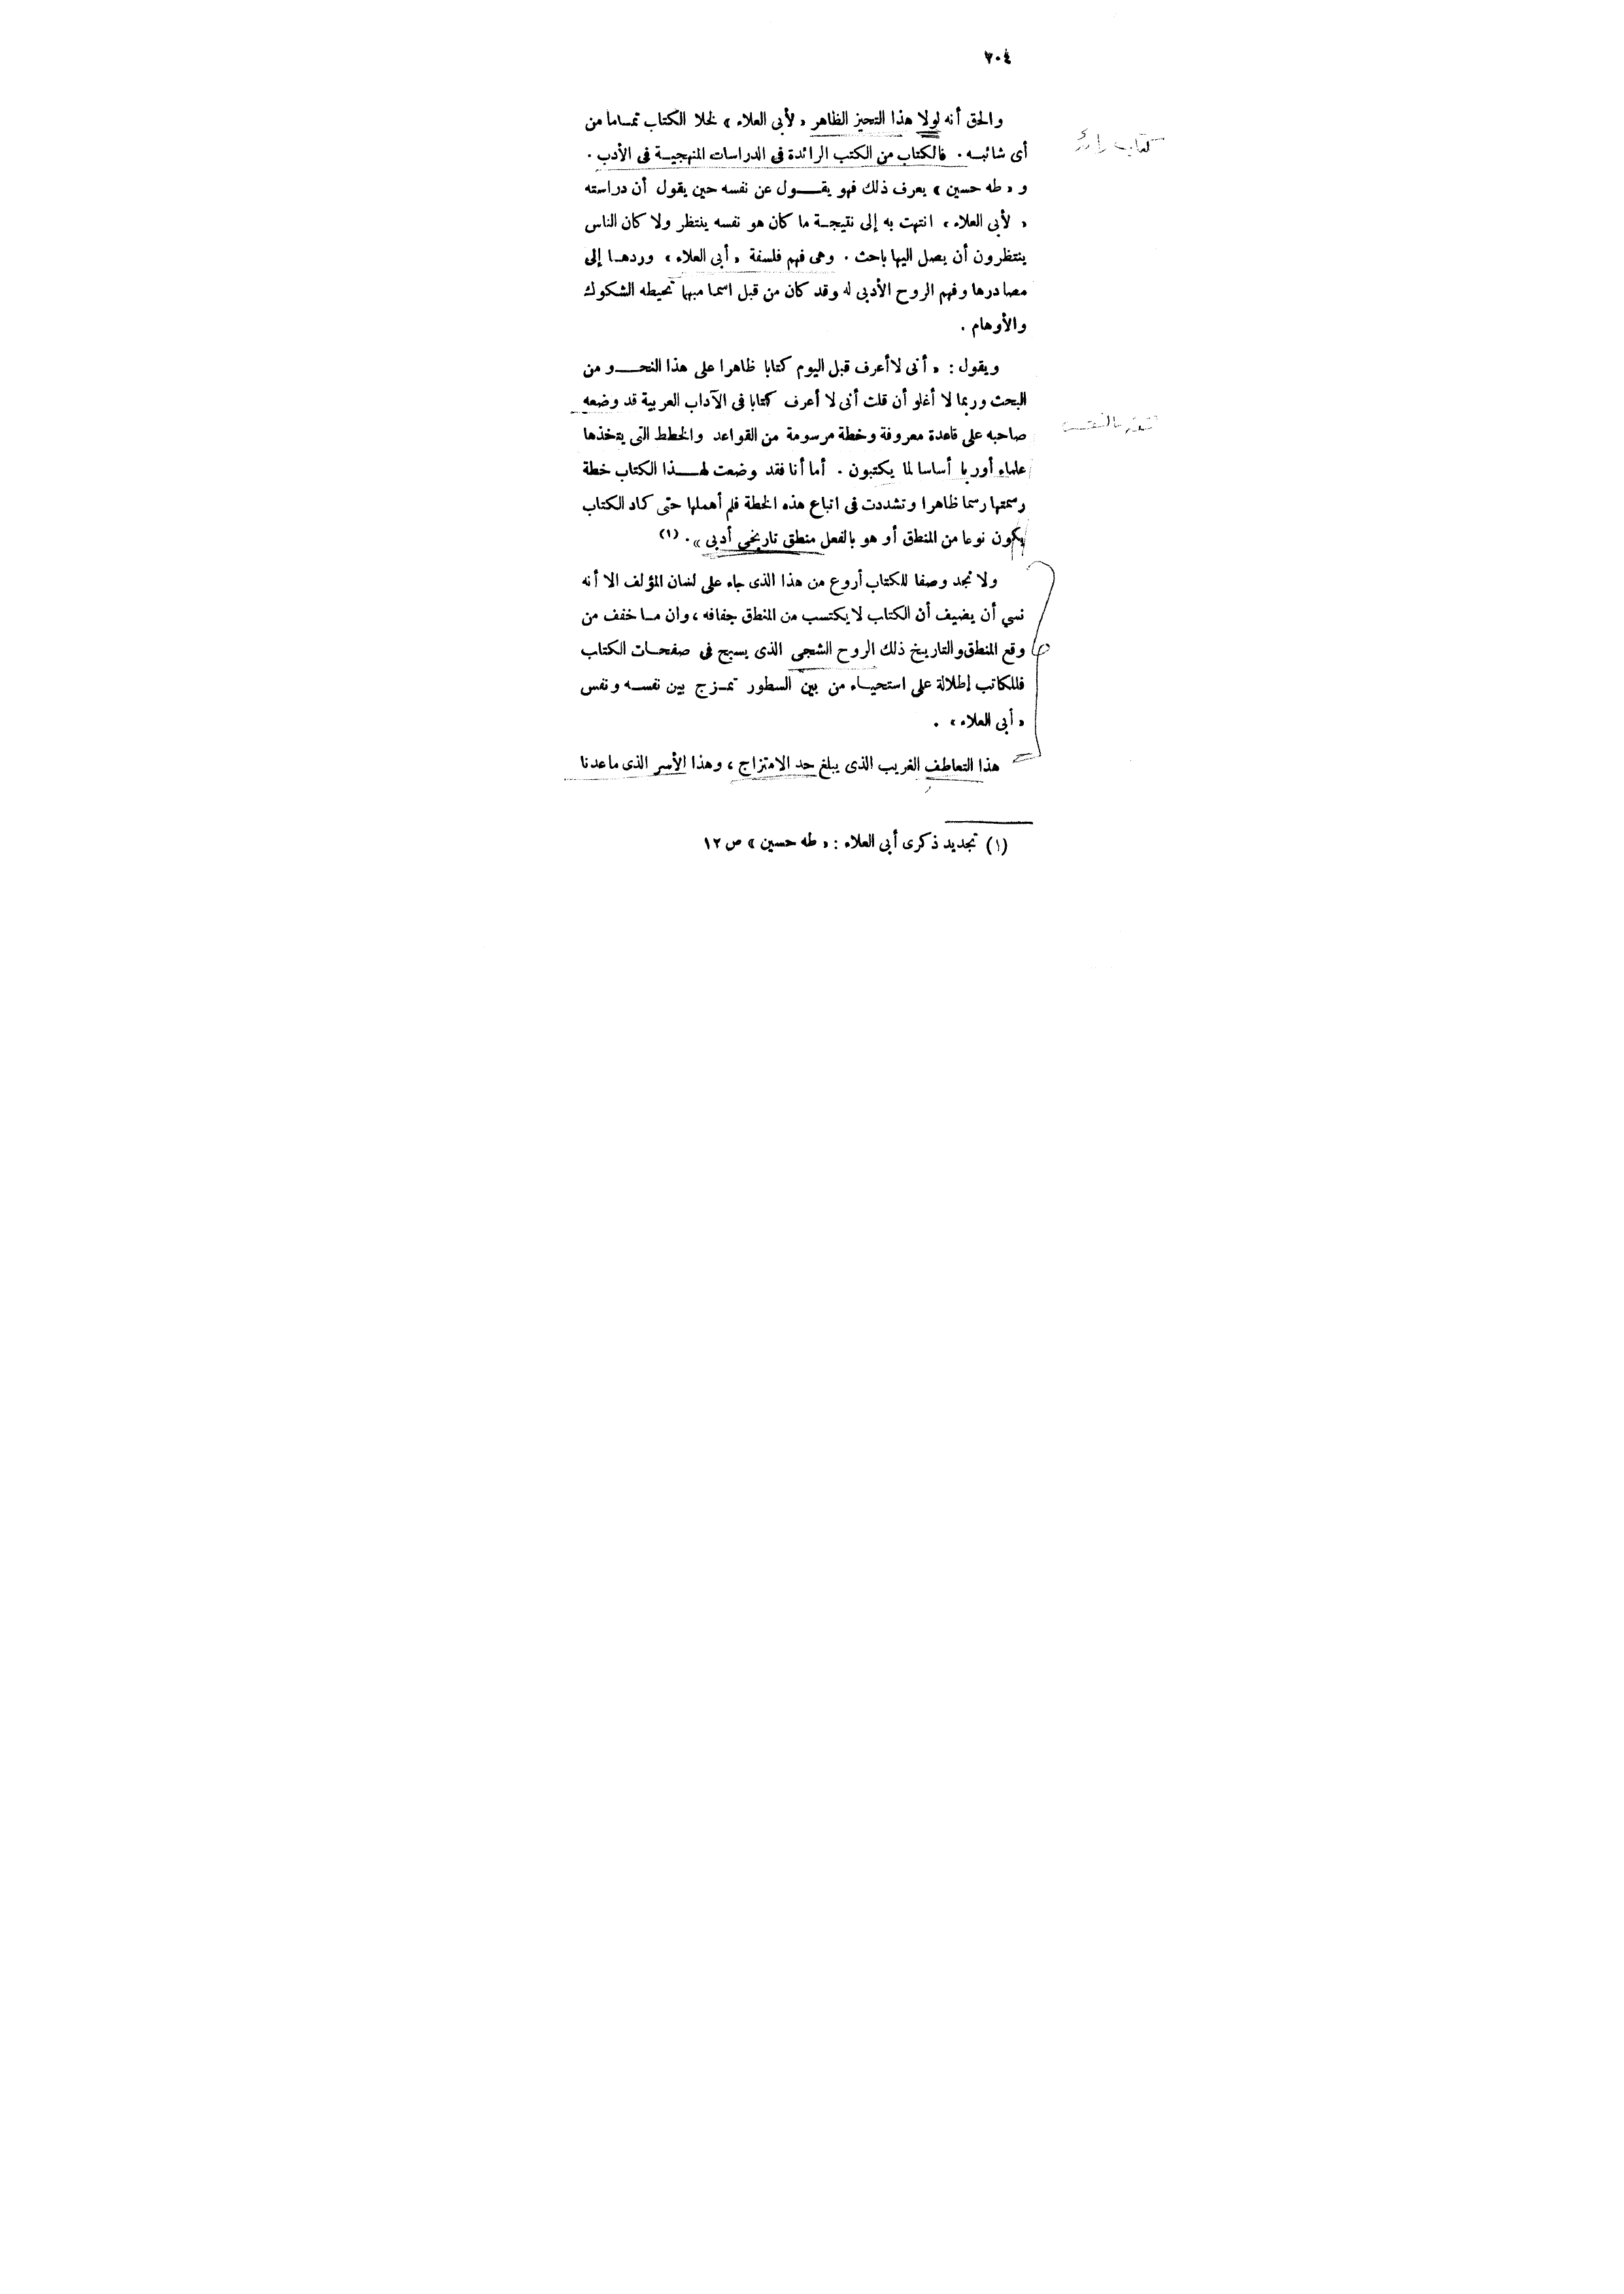 ٢٠٤
والحق أنه لولا هذا التحيز الظاهر « لأبى العلاء » لخلا الكتاب تمـاما من
أى شائبـه . فالكتاب من الكتب الرائدة فى الدراسات المنهجيـة فى الأدب .
و « طه حسين » يعرف ذلك فهو يقـــول عن نفسه حين يقول أن دراسته
« لأبى العلاء » انتهت به إلى نتيجـة ما كان هو نفسه ينتظر ولا كان الناس
ينتظرون أن يصل اليها باحث . وهى فهم فلسفة « أبى العلاء » وردهـا إلى
مصادرها وفهم الروح الأدبى له وقد كان من قبل اسما مبهما تحيطه الشكوك
والأوهام .
ويقول : « أنى لا أعرف قبل اليوم كتابا ظاهرا على هذا النحـــو من
البحث وربما لا أغلو أن قلت أنى لا أعرف كتابا فى الآداب العربية قد وضعه
صاحبه على قاعدة معروفة وخطة مرسومة من القواعد والخطط التى يتخذها
علماء أوربا أساسا لما يكتبون . أما أنا فقد وضعت لهـــذا الكتاب خطة
رسمتها رسما ظاهرا وتشددت فى اتباع هذه الخطة فلم أهملها حتى كاد الكتاب
يكون نوعا من المنطق أو هو بالفعل منطق تاريخى أدبى » . (١)
ولا نجد وصفا للكتاب أروع من هذا الذى جاء على لسان المؤلف الا أنه
نسي أن يضيف أن الكتاب لا يكتسب من المنطق جفافه ، وان مـا خفف من
وقع المنطق والتاريخ ذلك الروح الشجى الذى يسبح فى صفحـات الكتاب
فللكاتب إطلالة على استحيـاء من بين السطور تمـزج بين نفسـه ونفس
« أبى العلاء » .
هذا التعاطف الغريب الذى يبلغ حد الامتزاج ، وهذا الأسر الذى ماعدنا
(١) تجديد ذكرى أبى العلاء : « طه حسين » ص ١٢